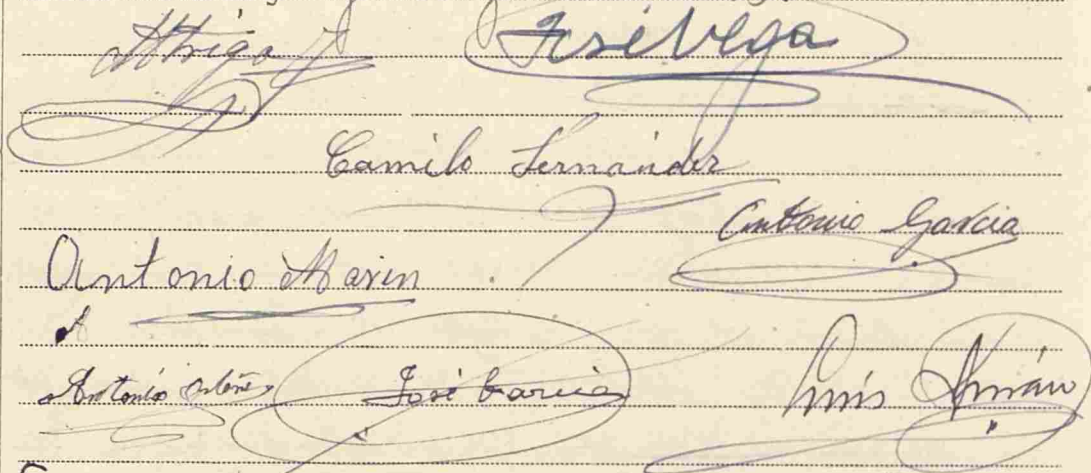 José Vega
Camilo Fernández
Antonio García
Antonio Marin
Antonio José García Luis